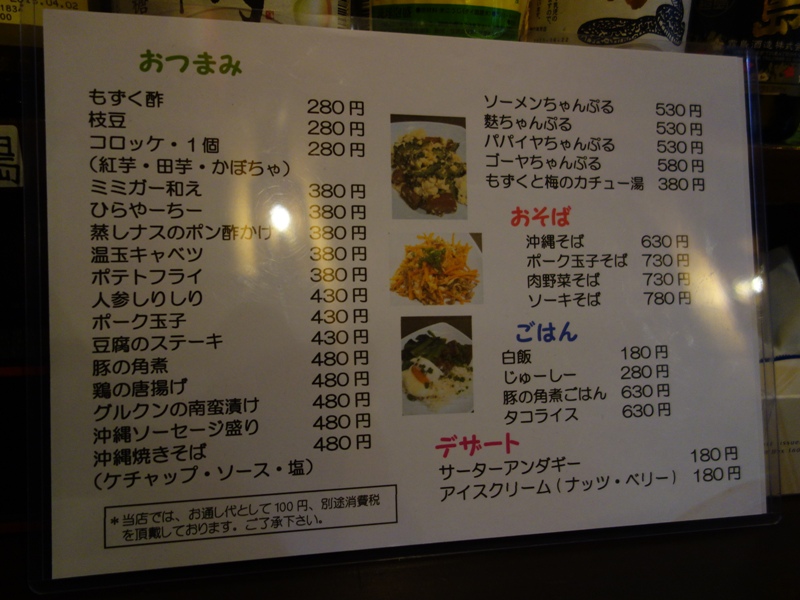 おつまみ
もずく酢 280円
枝豆 280円
コロッケ・1個 280円
(紅芋・田芋・かぼちゃ)
ミミガー和え 380円
ひらやーちー 380円
蒸しナスのポン酢かけ 380円
温玉キャベツ 380円
ポテトフライ 380円
人参しりしり 430円
ポーク玉子 430円
豆腐のステーキ 430円
豚の角煮 480円
鶏の唐揚げ 480円
グルクンの南蛮漬け 480円
沖縄ソーセージ盛り 480円
沖縄焼きそば 480円
(ケチャップ・ソース・塩)
*当店では、お通し代として100円、別途消費税
を頂戴しております。ご了承下さい。
ソーメンちゃんぷる 530円
麩ちゃんぷる 530円
パパイヤちゃんぷる 530円
ゴーヤちゃんぷる 580円
もずくと梅のカチュー湯 380円
おそば
沖縄そば 630円
ポーク玉子そば 730円
肉野菜そば 730円
ソーキそば 780円
ごはん
白飯 180円
じゅーしー 280円
豚の角煮ごはん 630円
タコライス 630円
デザート
サーターアンダギー 180円
アイスクリーム(ナッツ・ベリー) 180円